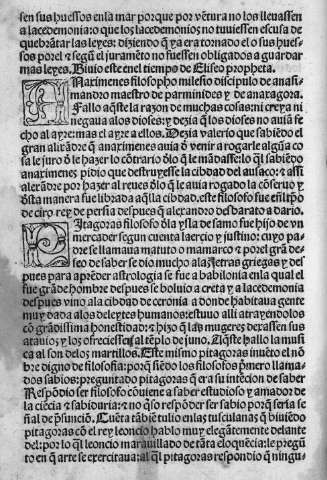 sen sus huessos enla mar porque por vẽtura no los lleuassen
a lacedemonia: o que los lacedemonios no tuuiessen escusa de
quebrãtar las leyes: diziendo q̃ ya era tornado el o sus hues-
sos por el & segũ el juramẽto no fuessen obligados a guardar
mas leyes. Biuio este enel tiempo de Eliseo propheta.
ANaximenes filosopho milesio discipulo de anasi-
mandro maestro de parminides y de anaxagora.
Fallo aq̃ste la razon de muchas cosas: ni creya ni
negaua alos dioses: y dezia q̃ los dioses no auiã fe
cho al ayre: mas el ayre a ellos. Dezia valerio que sabiẽdo el
gran alixãdre q̃ anaximenes auia đ venir a rogarle algũa co
sa le juro đ le hazer lo cõtrario đlo q̃ le mãdasse: lo q̃l sabiẽdo
anaximenes pidio que destruyesse la cibdad del ausaco: & assi
alexãdre por hazer al reues đlo q̃ le auia rogado la cõseruo y
đsta manera fue librada aq̃lla cibdad. este filosofo fue enl tpo
de ciro rey de persia despues q̃ alexandro desbarato a dario.
PItagoras filosofo đla ysla de samo fue hijo de vn
mercader segun cuenta laercio y justino: cuyo pa
dre se llamaua matuto o mamarco & por el grã de
seo de saber se dio mucho ala letras griegas y des
pues para aprẽder astrologia se fue a babilonia enla qual el
fue grãde hombre despues se boluio a creta y a lacedemonia
despues vino ala cibdad de ceronia a donde habitaua gente
muy dada alos deleytes humanos: estuuo alli atrayendolos
cõ grãdissima honestidad: & hizo q̃ las mugeres dexassen sus
atauios y los ofreciessen al tẽplo de juno. Aq̃ste hallo la musi
ca al son delos martillos. Este mismo pitagoras inuẽto el nõ
bre digno de filosofia: por q̃ siẽdo los filosofos p̃mero llama-
dos sabios: preguntado pitagoras q̃ era su intẽcion de saber
Respõdio ser filosofo cõuiene a saber estudioso y amador de
la ciẽcia & sabiduria: & no q̃so respõder ser sabio porq̃ seria se
ñal de p̃sunciõ. Cuẽta tãbiẽ tulio enlas tusculanas q̃ biuiẽdo
pitagoras cõ el rey leoncio hablo muy elegãtemente delante
del: por lo q̃l leoncio marauillado de tãta eloquẽcia: le pregũ
to en q̃ arte se exercitaua: al q̃l pitagoras respondio q̃ ningu-